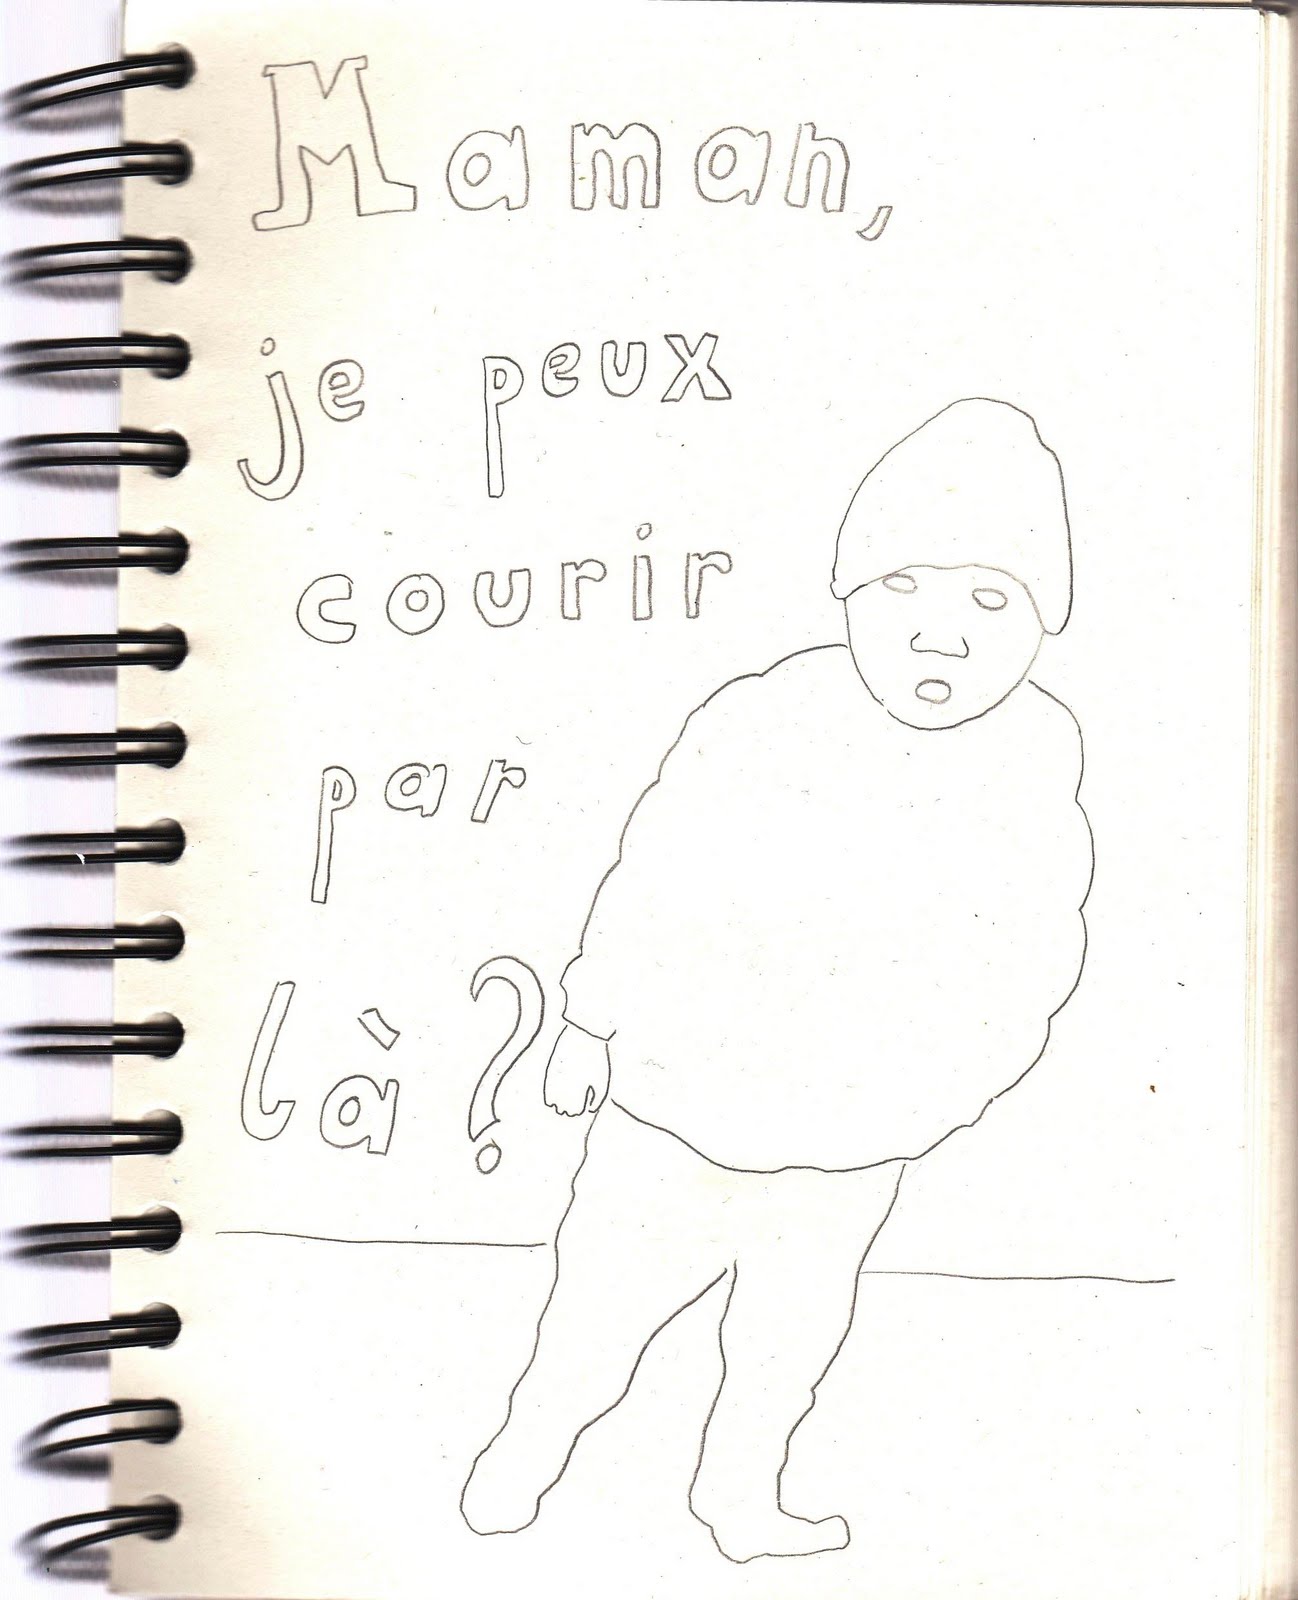 Maman,
je peux
courir
par
là?